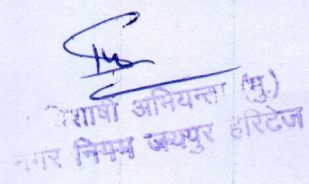 अभियन्ता (मु.)
नगर निगम जयपुर हैरिटेज